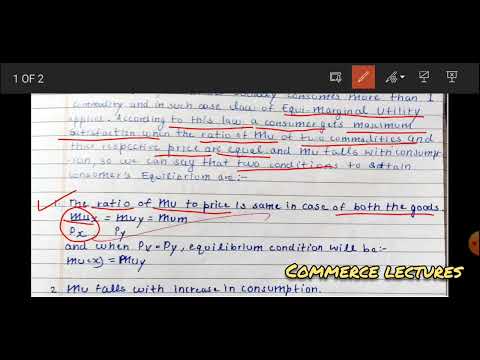 1 OF 2
consumes more than 1
commodity and in such case law of Equi-Marginal Utility
applied. According to this law a consumer gets maximum
satisfaction when the ratio of MU of two commodities and
their respective price are equal and MU falls with consumpt-
-ion, so we can say that two conditions to attain
consumer's Equilibrium are:-
1. The ratio of MU to price is same in case of both the goods.
MUx = MUy = MUm
Px Py
and when Px = Py, equilibrium condition will be:-
MU(x) = MUy
COMMERCE LECTURES
2. MU falls with increase in consumption.